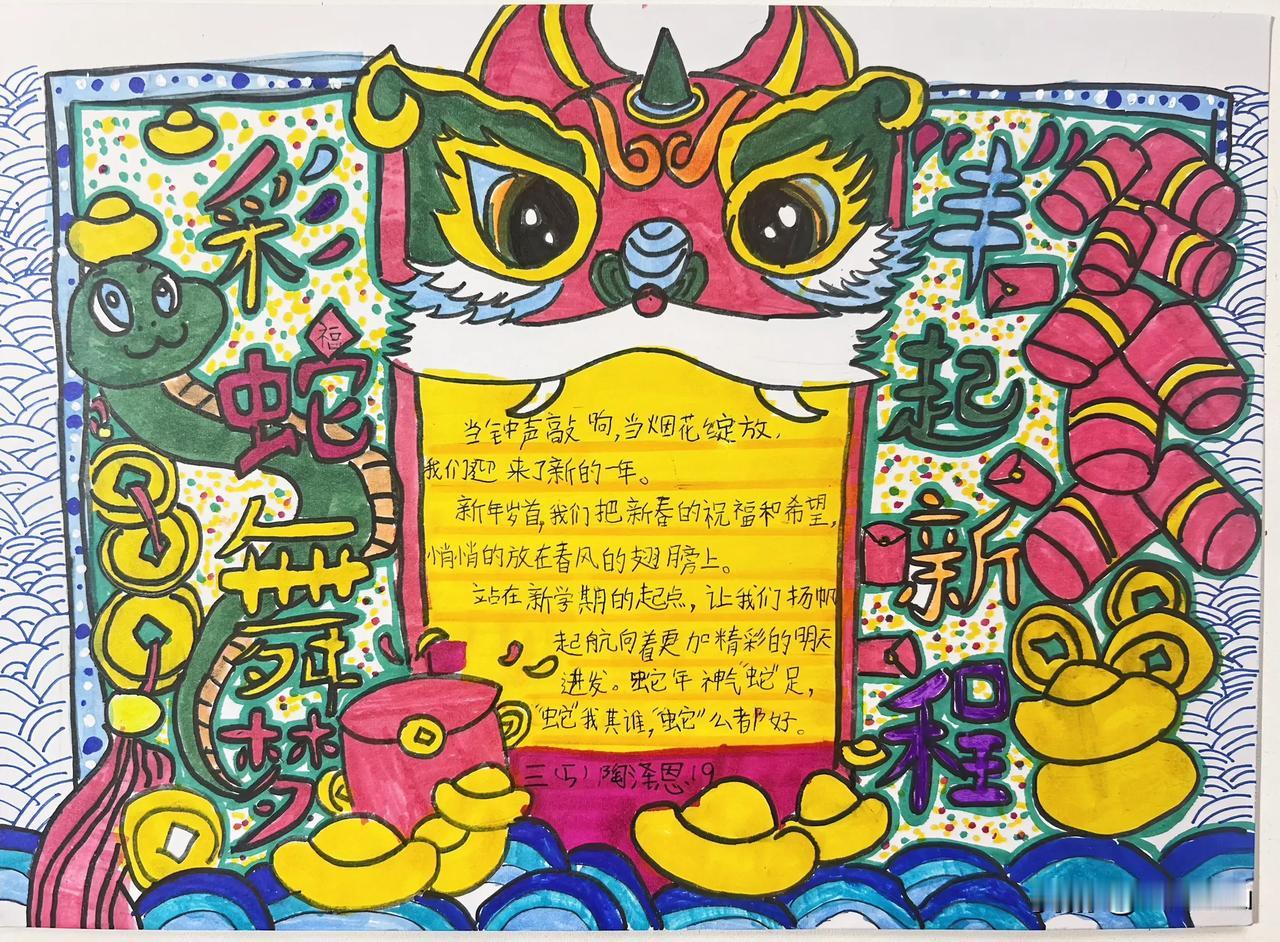 彩蛇舞梦
福
丰起新程
当钟声敲响,当烟花绽放,
我们迎来了新的一年。
新年岁首,我们把新春的祝福和希望,
悄悄的放在春风的翅膀上。
站在新学期的起点,让我们扬帆
起航向着更加精彩的明天
进发。蛇年神气“蛇”足,
“蛇”我其谁,“蛇”么都好。
三(5)陶泽恩.19